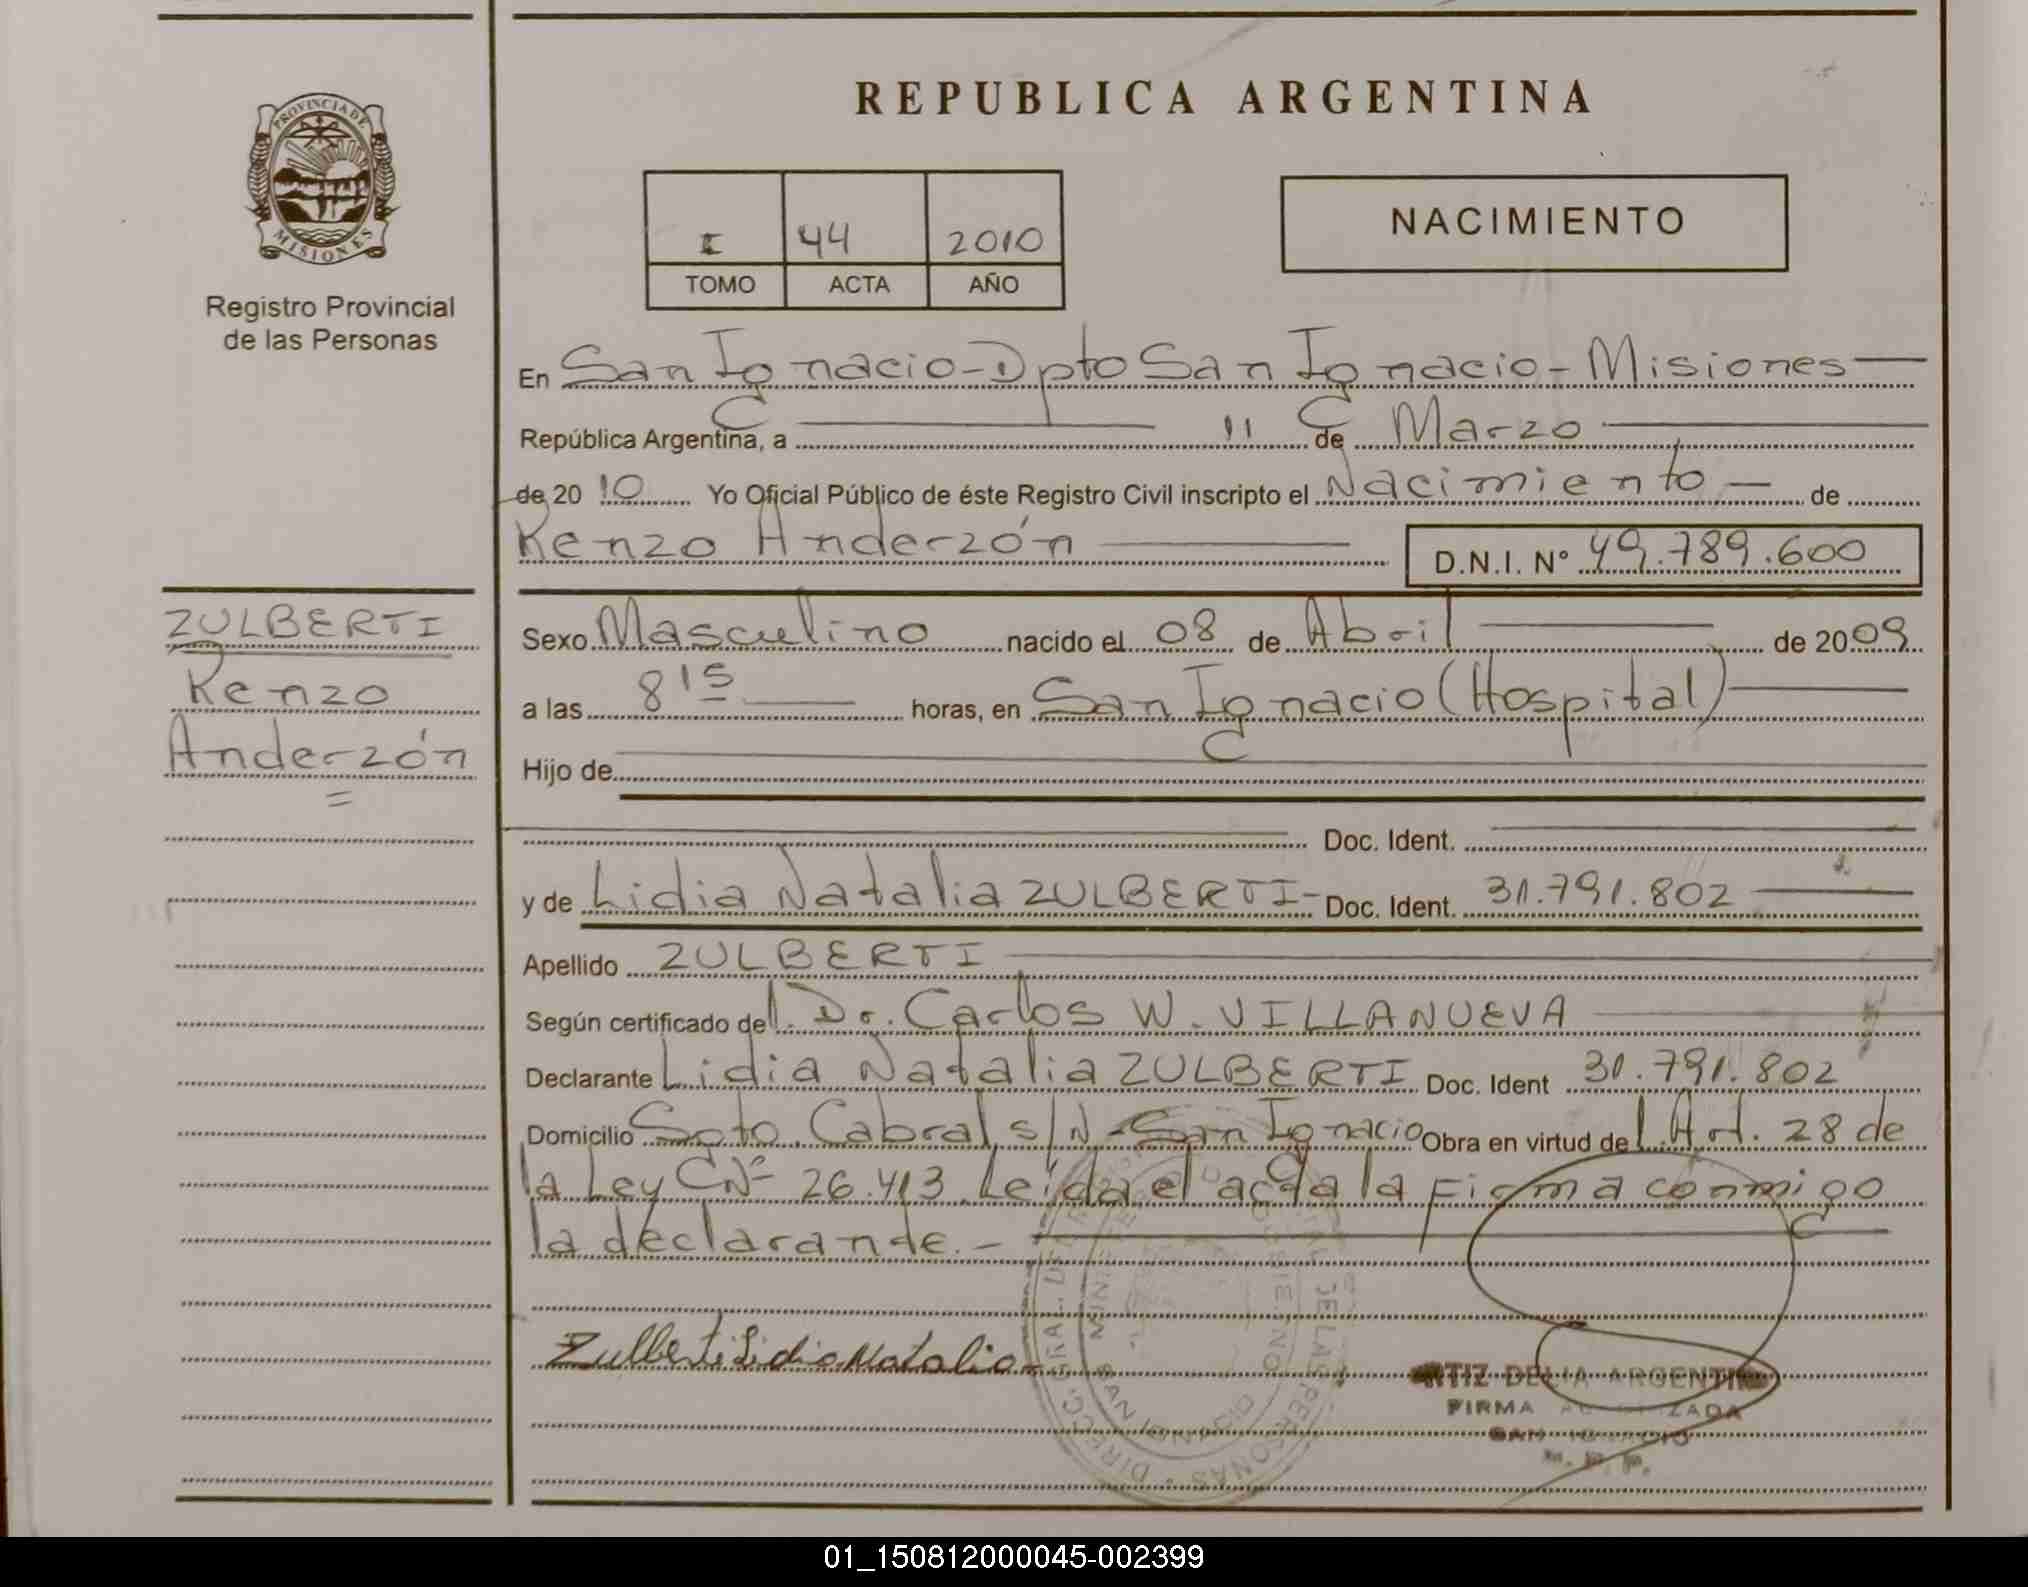 REPUBLICA ARGENTINA
PROVINCIA DE
MISIONES
Registro Provincial
de las Personas
I 44 2010
TOMO ACTA AÑO
NACIMIENTO
En San Ignacio - Dpto San Ignacio - Misiones
República Argentina, a 11 de Marzo
de 2010 Yo Oficial Público de éste Registro Civil inscripto el Nacimiento - de
Kenzo Anderzón D.N.I. N° 49.789.600
ZULBERTI
Kenzo
Anderzón
Sexo Masculino nacido el 08 de Abril de 2009
a las 8 15 horas, en San Ignacio (Hospital)
Hijo de
Doc. Ident.
y de Lidia Natalia ZULBERTI - Doc. Ident. 31.791.802
Apellido ZULBERTI
Según certificado del Dr. Carlos W. VILLANUEVA
Declarante Lidia Natalia ZULBERTI Doc. Ident 31.791.802
Domicilio Soto Cabral s/N - San Ignacio Obra en virtud del Art. 28 de
la Ley CNº 26.413. Leída el acta la firma conmigo
la declarante. -
Zulberti Lidia Natalia
DELIA ARGENTIN
FIRMA
SAN IGNACIO
SAN IGNACIO
01_150812000045-002399